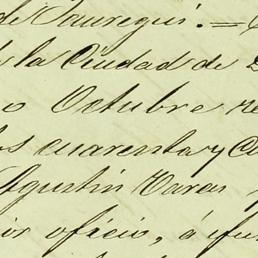 de Jauregui. =
la Ciudad de
Octubre
cuarenta y
Agustin Varas
oficio, á